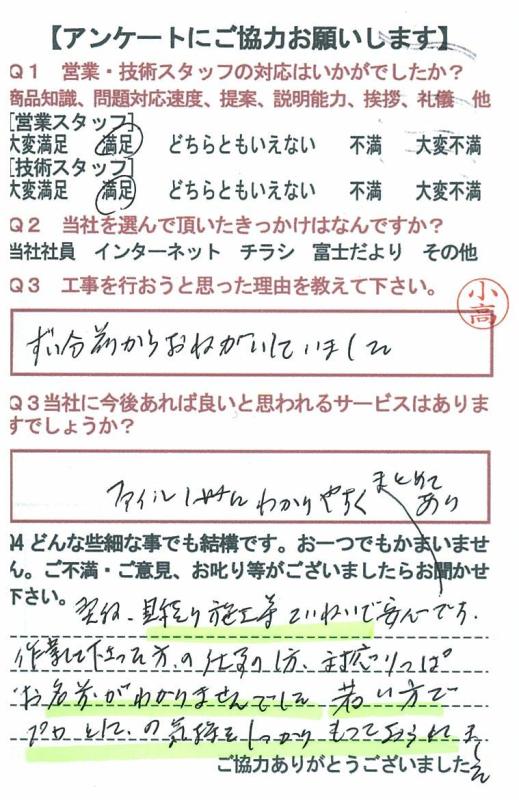 【アンケートにご協力お願いします】
Q1 営業・技術スタッフの対応はいかがでしたか?
商品知識、問題対応速度、提案、説明能力、挨拶、礼儀 他
[営業スタッフ]
大変満足 満足 どちらともいえない 不満 大変不満
[技術スタッフ]
大変満足 満足 どちらともいえない 不満 大変不満
Q2 当社を選んで頂いたきっかけはなんですか?
当社社員 インターネット チラシ 富士だより その他
Q3 工事を行おうと思った理由を教えて下さい。
小高
ずい分前からおねがいしていました
Q3当社に今後あれば良いと思われるサービスはありま
すでしょうか?
ファイル わかりやすく まとめて
あり
Q4 どんな些細な事でも結構です。お一つでもかまいませ
ん。ご不満・ご意見、お叱り等がございましたらお聞かせ
下さい。
見積り施工等ていねいで安心です.
作業して下さった方の仕事の仕方、対応りっぱ。
お名前がわかりませんでした 若い方で
の気持をしっかりもっておられました
ご協力ありがとうございました